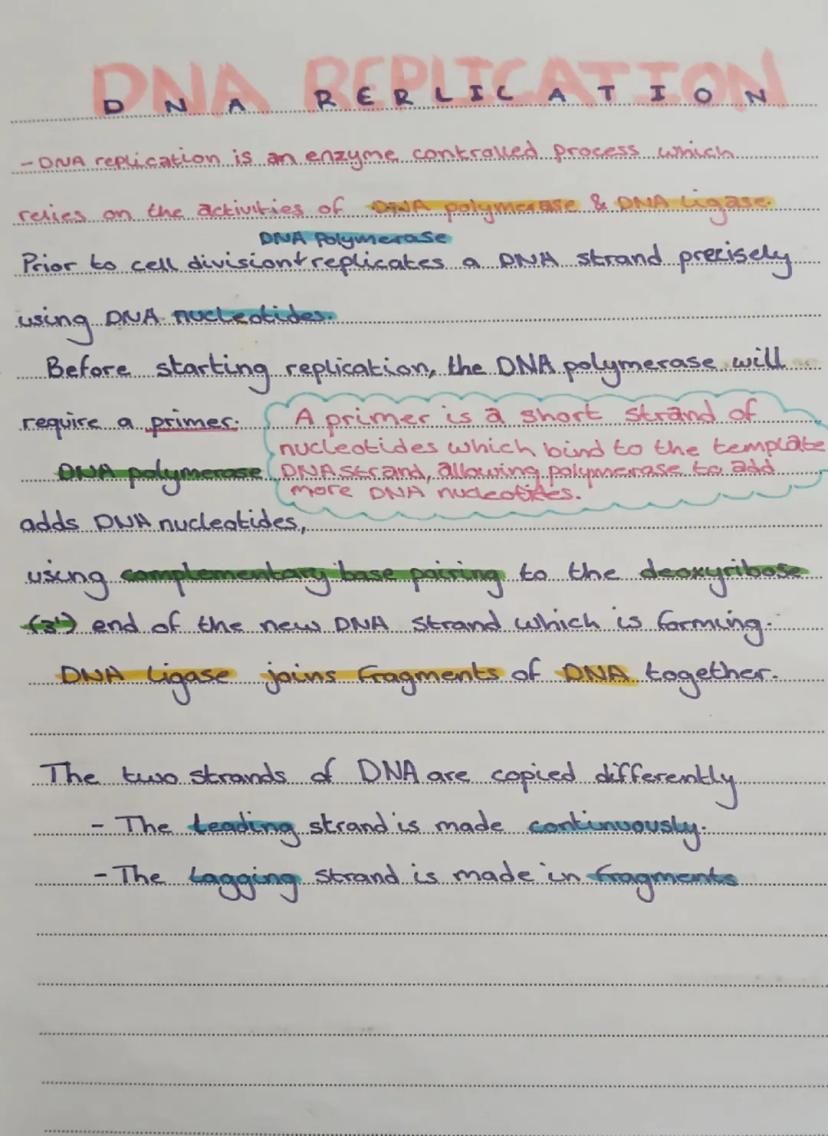 DNA REPLICATION
D N A R E R L I C A T I O N
- DNA replication is an enzyme controlled process which
relies on the activities of DNA polymerase & DNA Ligase.
DNA Polymerase
Prior to cell division replicates a DNA strand precisely
using DNA nucleotides.
Before starting replication, the DNA polymerase will
require a primer.
A primer is a short strand of
nucleotides which bind to the template
DNA strand, allowing polymerase to add
more DNA nucleotides.
DNA polymerase
adds DNA nucleotides,
using complementary base pairing to the deoxyribose
(3') end of the new DNA strand which is forming.
DNA Ligase joins fragments of DNA together.
The two strands of DNA are copied differently
- The Leading strand is made continuously.
- The Lagging strand is made in fragments